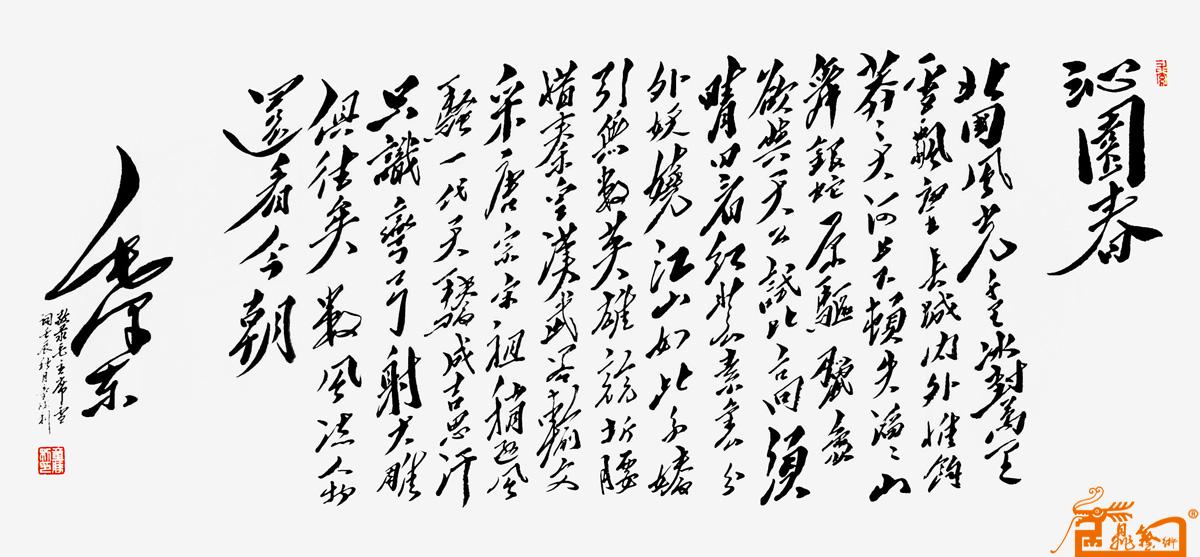 沁園春
北國風光千里冰封萬里
雪飄望長城内外惟餘
莽々大河上下頓失滔々山
舞銀蛇原驅蠟象
欲與天公試比高須
晴日看紅裝素裹分
外妖嬈江山如此多嬌
引無數英雄競折腰
惜秦皇漢武略輸文
采唐宗宋祖稍遜風
騷一代天驕成吉思汗
只識彎弓射大雕
俱往矣數風流人物
還看今朝
毛澤東
敬录毛主席雪
词壬辰秋月
藝術